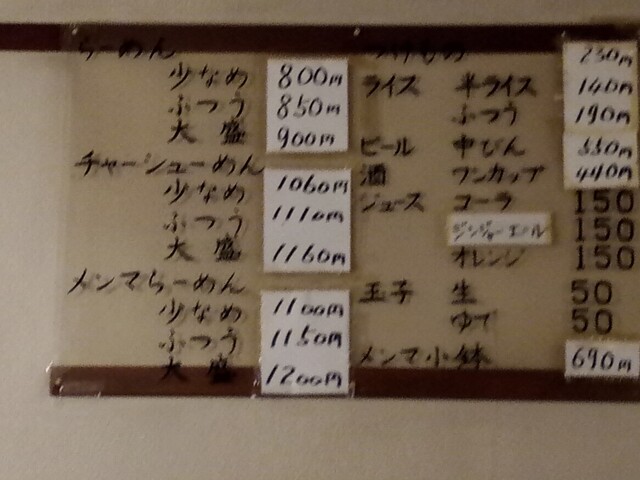 らーめん
少なめ 800円
ふつう 850円
大盛 900円
チャーシューめん
少なめ 1060円
ふつう 1110円
大盛 1160円
メンマらーめん
少なめ 1100円
ふつう 1150円
大盛 1200円
つけもの 250円
ライス 半ライス 140円
ふつう 190円
ビール 中びん 550円
酒 ワンカップ 440円
ジュース コーラ 150
ジンジャーエール 150
オレンジ 150
玉子 生 50
ゆで 50
メンマ小鉢 690円